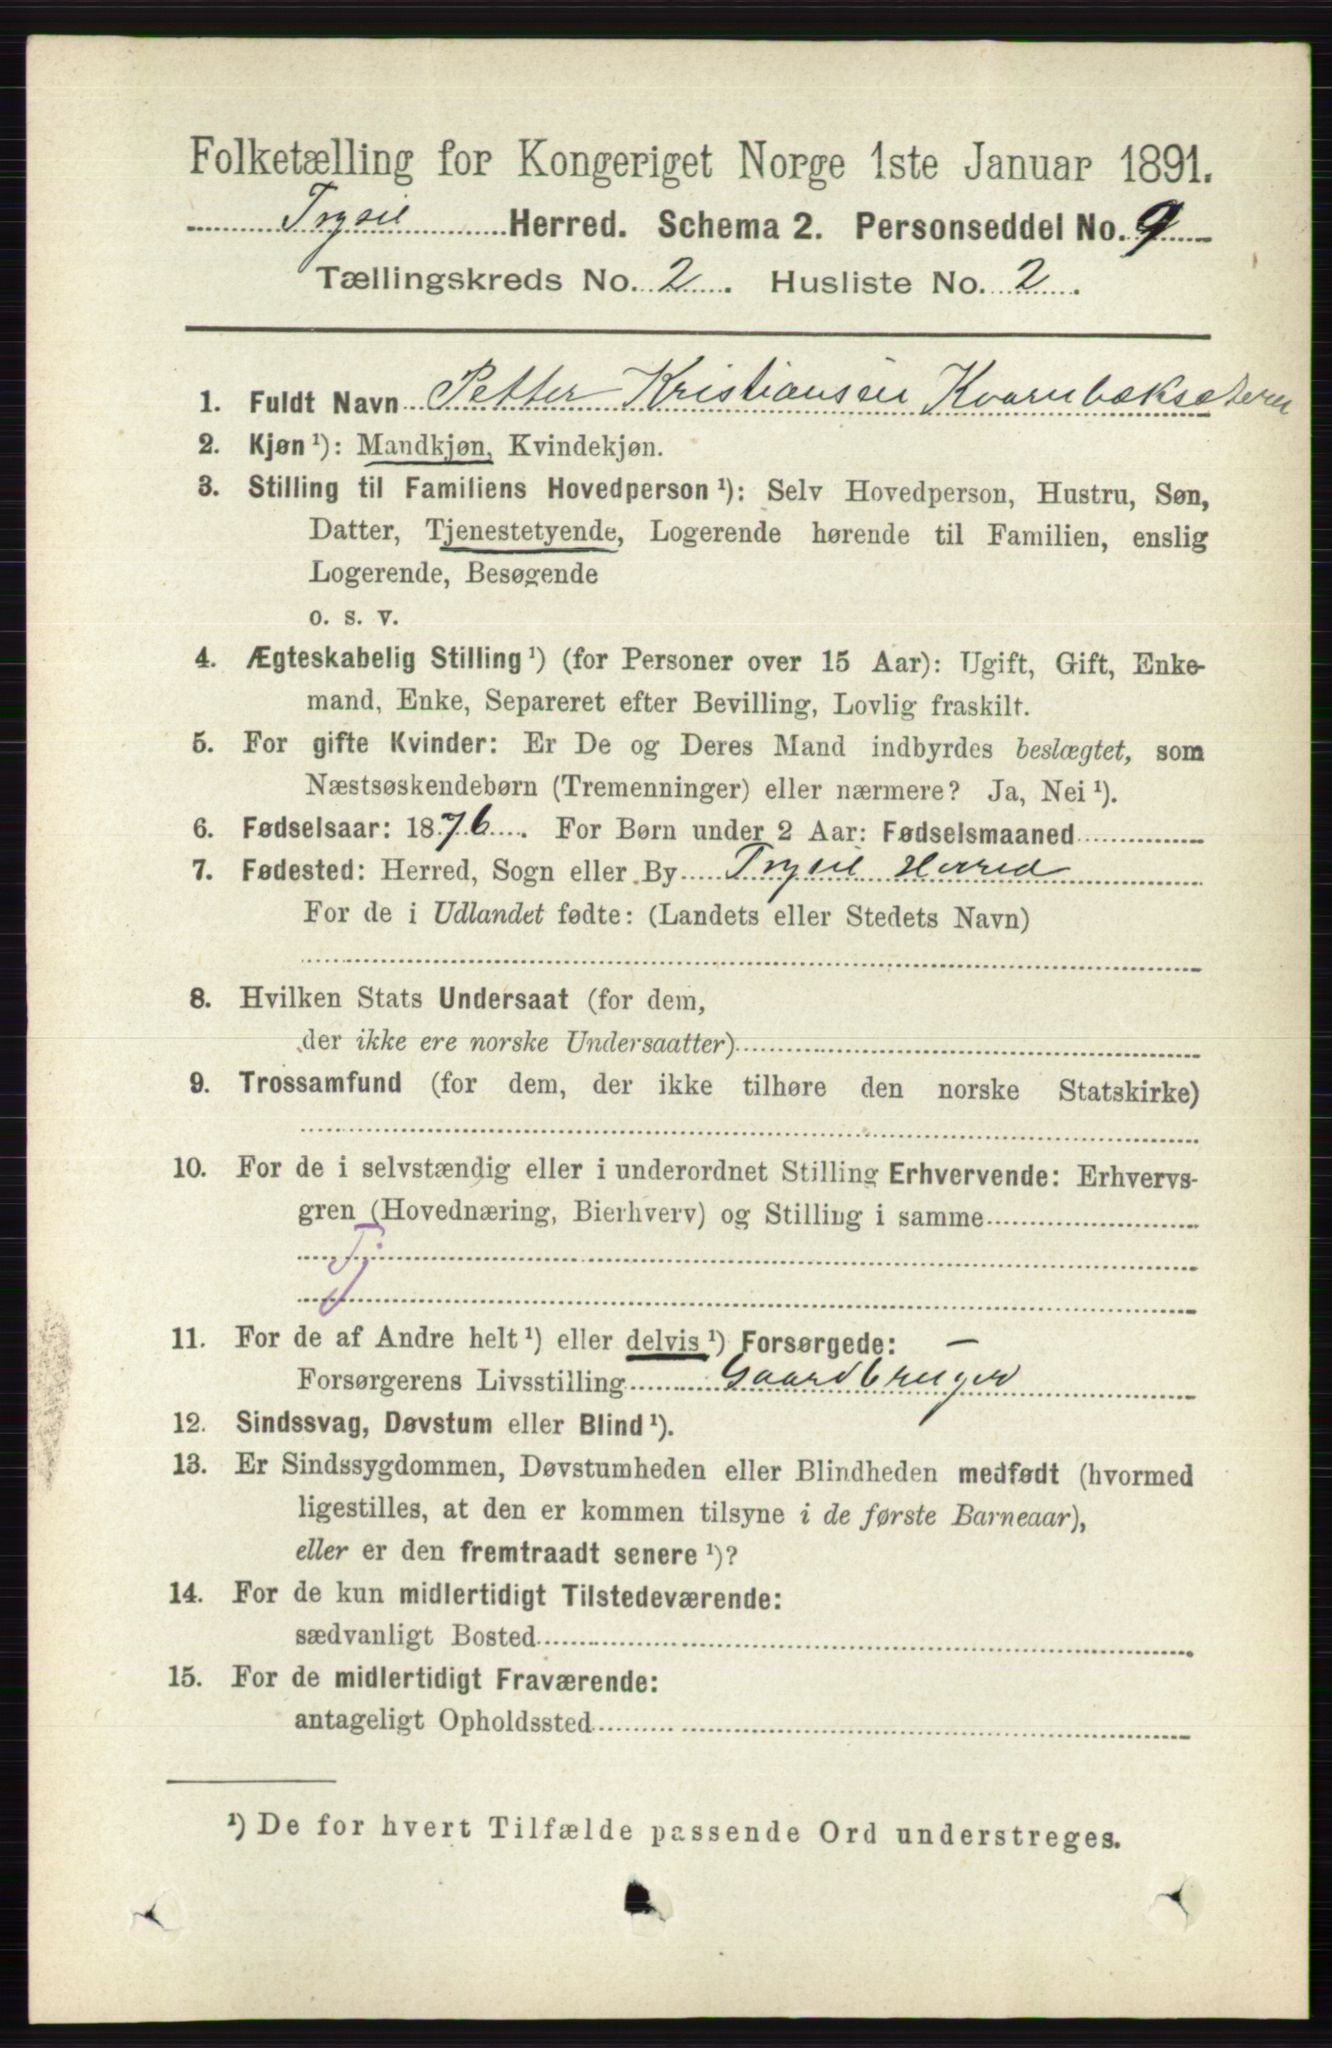 Folketælling for Kongeriget Norge 1ste Januar 1891.
Trysil Herred. Schema 2. Personseddel No. 9
Tællingskreds No. 2. Husliste No. 2.
1. Fuldt Navn Petter Kristiansen Kvarnbæksæteren
2. Kjøn ¹): Mandkjøn, Kvindekjøn.
3. Stilling til Familiens Hovedperson ¹): Selv Hovedperson, Hustru, Søn,
Datter, Tjenestetyende, Logerende hørende til Familien, enslig
Logerende, Besøgende
o. s. v.
4. Ægteskabelig Stilling ¹) (for Personer over 15 Aar): Ugift, Gift, Enke-
mand, Enke, Separeret efter Bevilling, Lovlig fraskilt.
5. For gifte Kvinder: Er De og Deres Mand indbyrdes beslægtet, som
Næstsøskendebørn (Tremenninger) eller nærmere? Ja, Nei ¹).
6. Fødselsaar: 1876. For Børn under 2 Aar: Fødselsmaaned
7. Fødested: Herred, Sogn eller By Trysil Herred
For de i Udlandet fødte: (Landets eller Stedets Navn)
8. Hvilken Stats Undersaat (for dem,
der ikke ere norske Undersaatter)
9. Trossamfund (for dem, der ikke tilhøre den norske Statskirke)
10. For de i selvstændig eller i underordnet Stilling Erhvervende: Erhvervs-
gren (Hovednæring, Bierhverv) og Stilling i samme
Tj
11. For de af Andre helt ¹) eller delvis ¹) Forsørgede: —
Forsørgerens Livsstilling Gaardbruger
12. Sindssvag, Døvstum eller Blind ¹).
13. Er Sindssygdommen, Døvstumheden eller Blindheden medfødt (hvormed
ligestilles, at den er kommen tilsyne i de første Barneaar),
eller er den fremtraadt senere ¹)?
14. For de kun midlertidigt Tilstedeværende:
sædvanligt Bosted
15. For de midlertidigt Fraværende:
antageligt Opholdssted
¹) De for hvert Tilfælde passende Ord understreges.